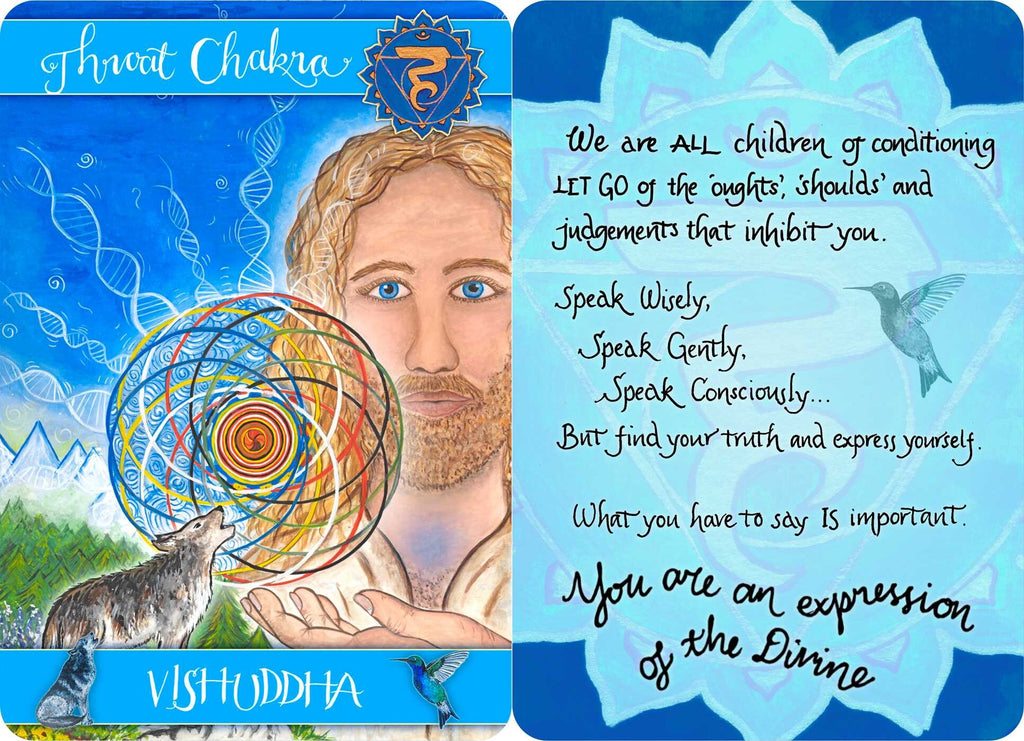 Throat Chakra
हं
VISHUDDHA
We are ALL children of conditioning
LET GO of the 'oughts', 'shoulds' and
judgements that inhibit you.
Speak Wisely,
Speak Gently,
Speak Consciously...
But find your truth and express yourself.
What you have to say IS important.
You are an expression
of the Divine